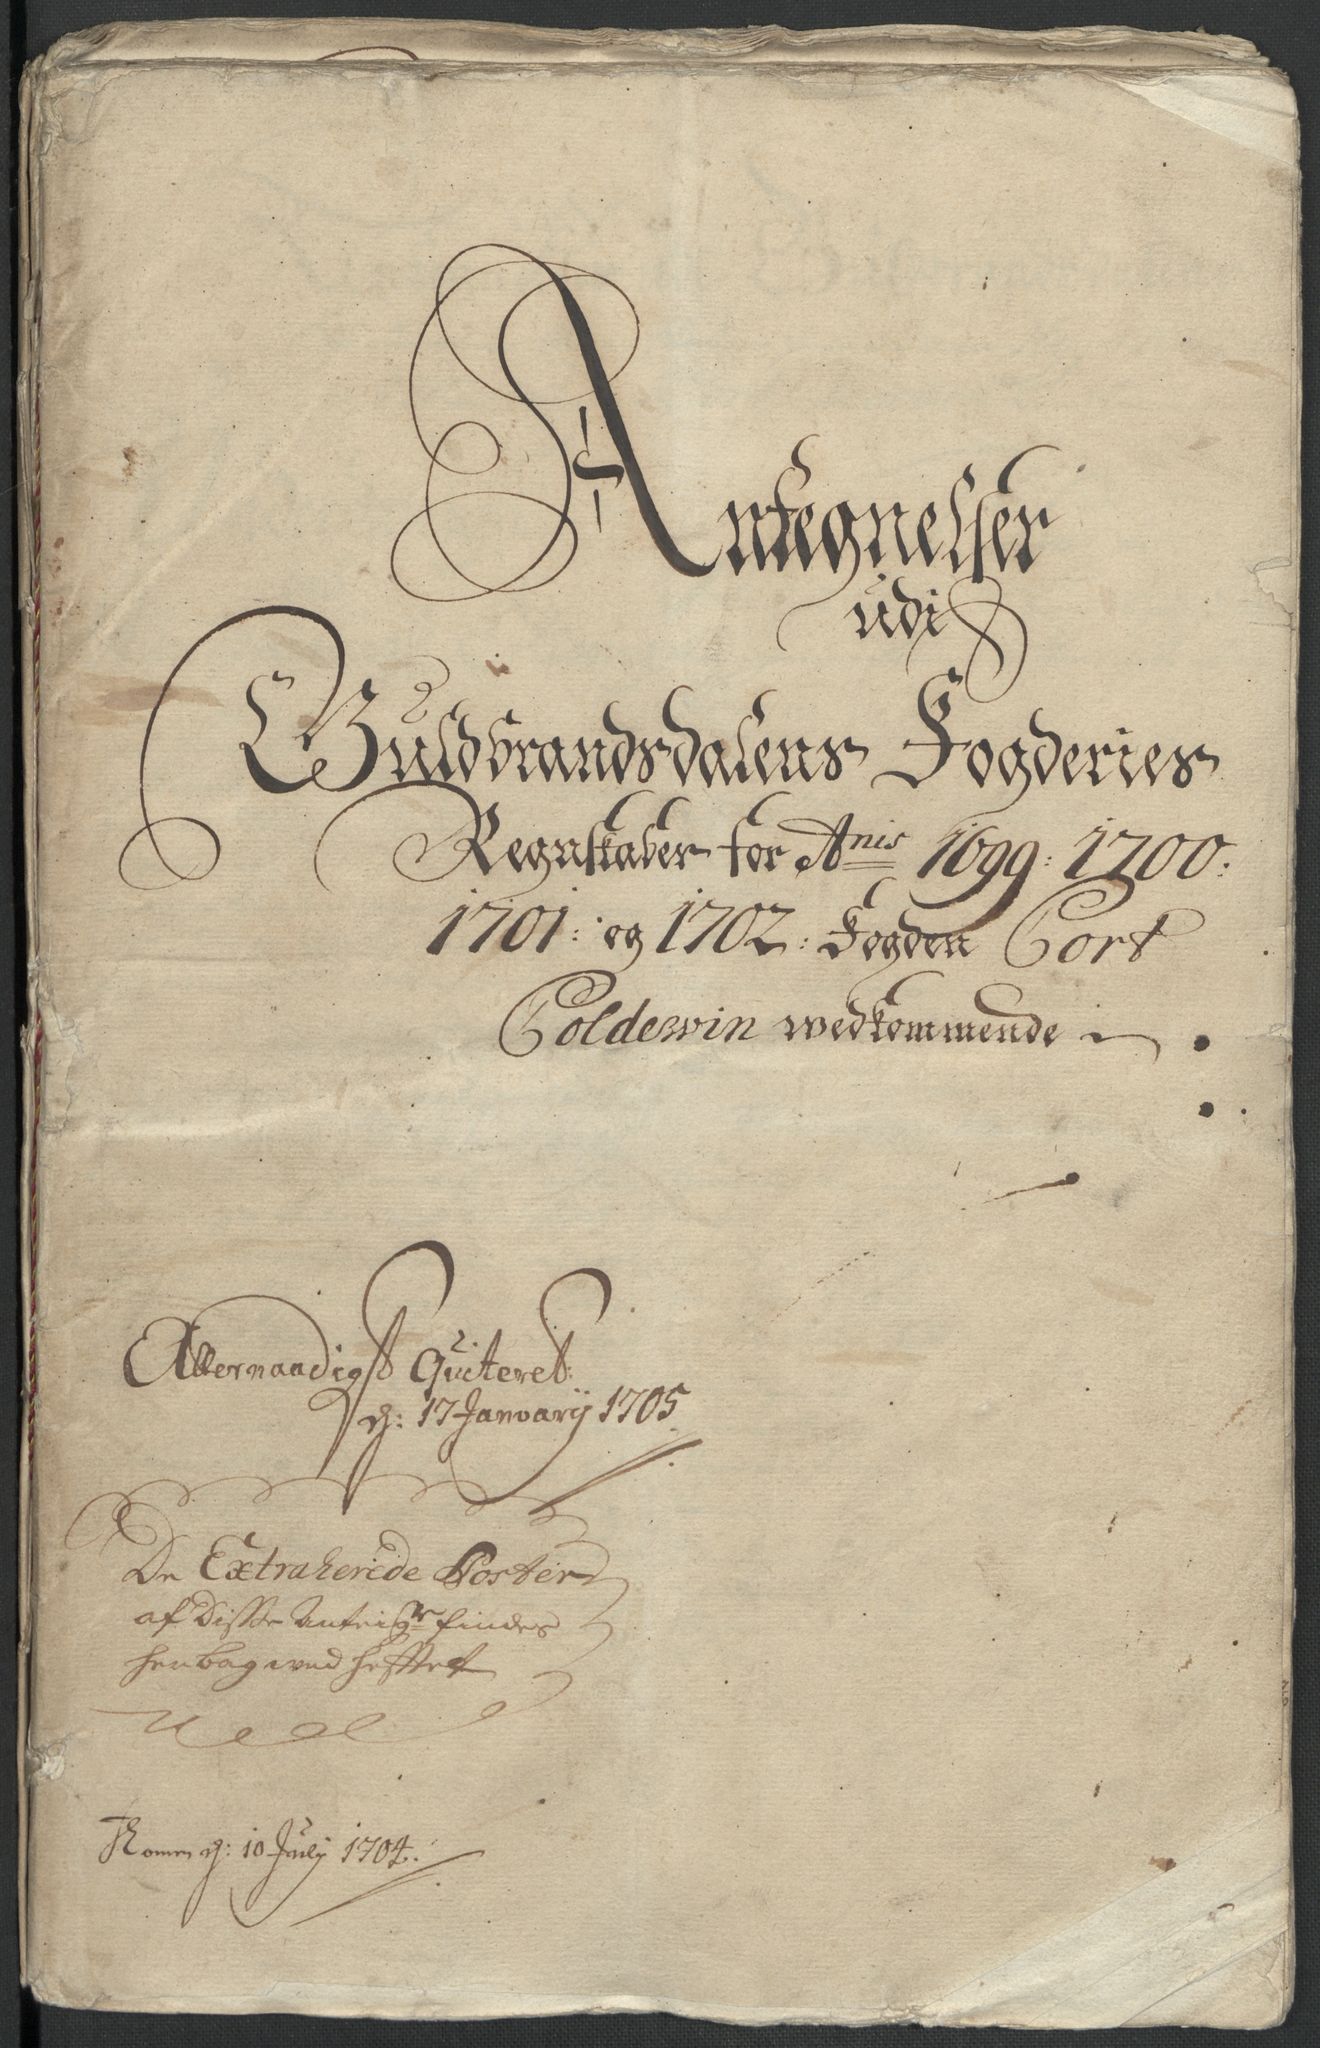 Antegnelser
udi
Guldbrandsdalens Fogderies
Regnskaber for Anis 1699: 1700:
1701: og 1702: Fogden Cort
Coldewin wedkommende
Allernaadigst Quiteret:
d: 17 January 1705
De Extraherede Poster
af Disse Anteigr findes
her bag wed hefftet
Komen d: 10 July 1704.